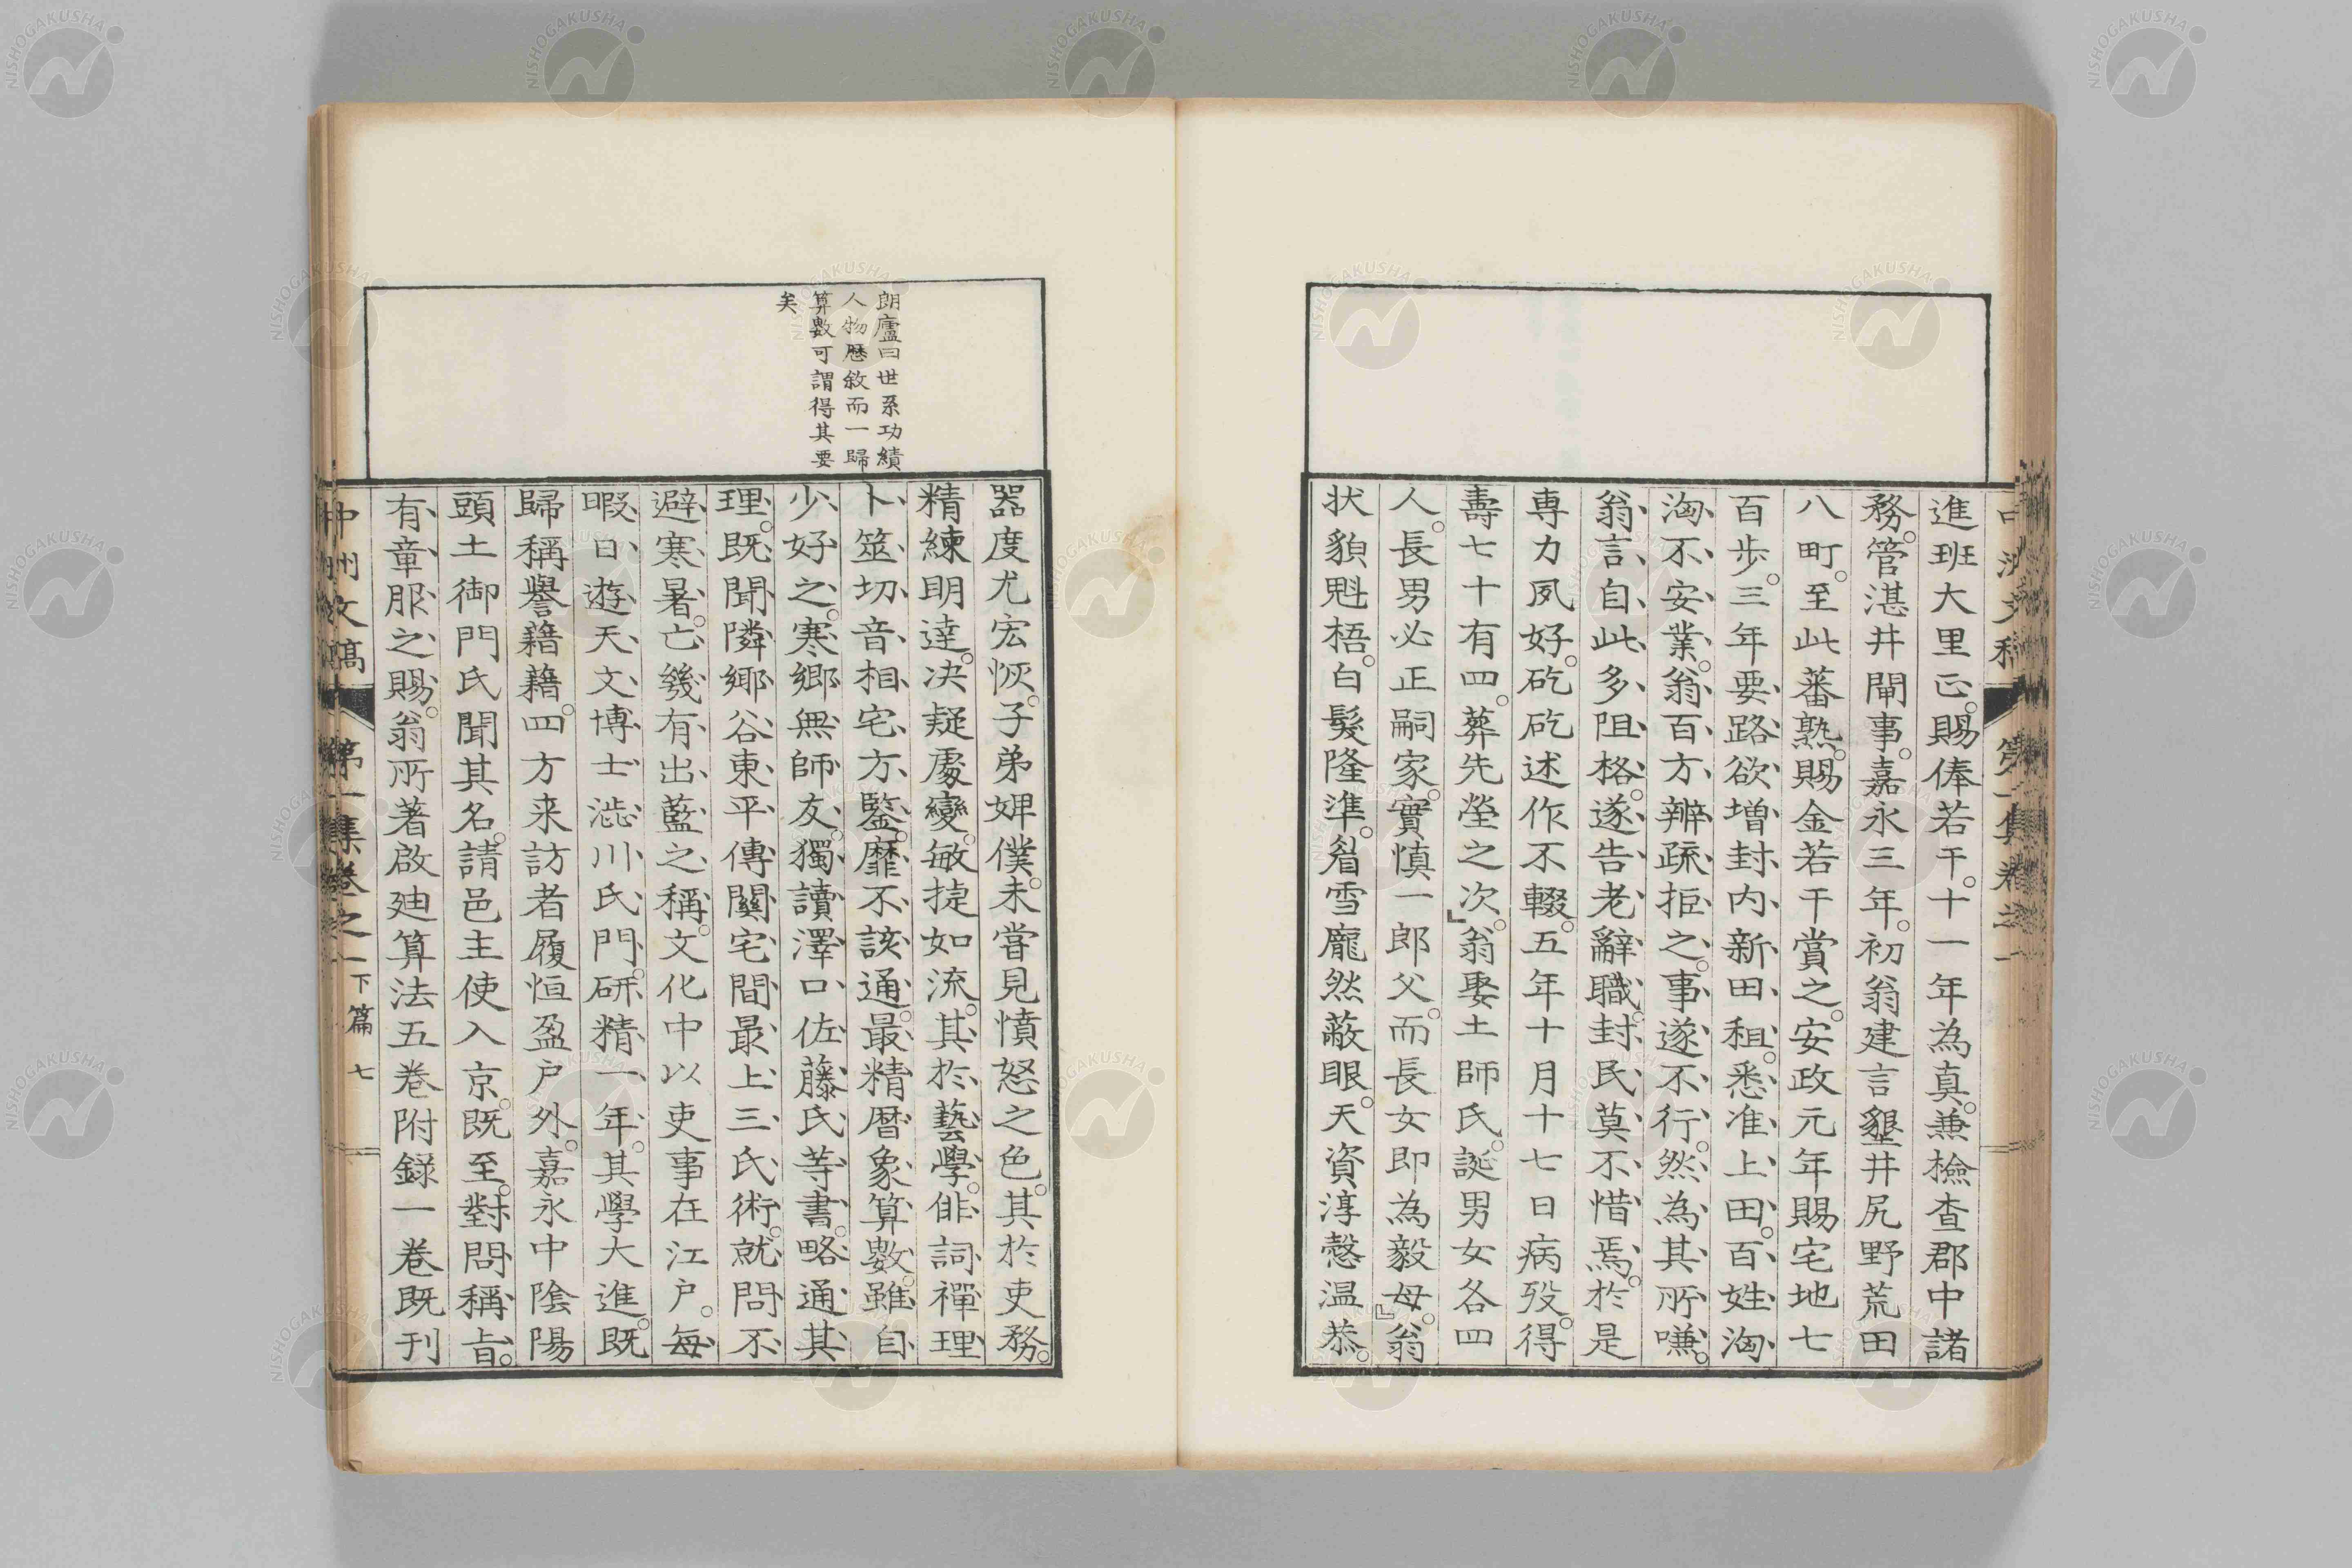 進班大里正。賜俸若干。十一年為真。兼檢查郡中諸
務。管湛井閘事。嘉永三年。初翁建言墾井尻野荒田
八町。至此蕃熟。賜金若干賞之。安政元年賜宅地七
百步。三年要路欲增封内新田租。悉准上田。百姓洶
洶不安業。翁百方辨疏拒之。事遂不行。然為其所嗛。
翁言自此多阻格。遂告老辭職。封民莫不惜焉。於是
専力夙好。矻矻述作不輟。五年十月十七日病歿。得
壽七十有四。葬先塋之次。』翁娶土師氏。誕男女各四
人。長男必正嗣家。實慎一郎父。而長女即為毅母。』翁
狀貌魁梧。白髮隆準。眉雪龐然蔽眼。天資淳慤温恭。
朗廬曰世系功績
人物歴敘而一歸
算數可謂得其要
矣
器度尤宏恢。子弟婢僕。未嘗見憤怒之色。其於吏務。
精練明達。决疑處變。敏捷如流。其於藝學。俳詞禪理
卜筮切音相宅方鑒。靡不該通。最精暦象算數。雖自
少好之。寒鄉無師友。獨讀澤口佐藤氏等書。略通其
理。既聞隣鄉谷東平傳關宅間最上三氏術。就問不
避寒暑。亡幾有出藍之稱。文化中以吏事在江戸。每
暇日遊天文博士澁川氏門。研精一年。其學大進。既
歸稱譽藉藉。四方来訪者履恒盈戸外。嘉永中陰陽
頭土御門氏聞其名。請邑主使入京。既至。對問稱旨。
有章服之賜。翁所著啟廸算法五卷附録一卷既刊
中洲文稿 第一集卷之一下篇 七